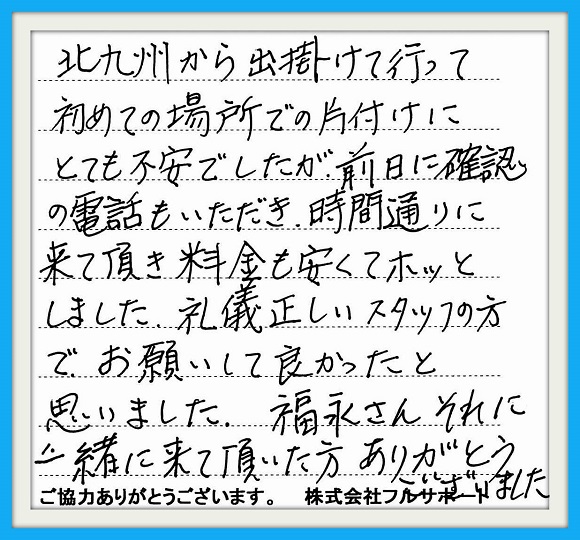 北九州から出掛けて行って
初めての場所での片付けに
とても不安でしたが、前日に確認
の電話もいただき、時間通りに
来て頂き料金も安くてホッと
しました、礼儀正しいスタッフの方
で、お願いして良かったと
思いました。 福永さん それに
一緒に来て頂いた方 ありがとう
ございました
ご協力ありがとうございます。 株式会社フルサポート